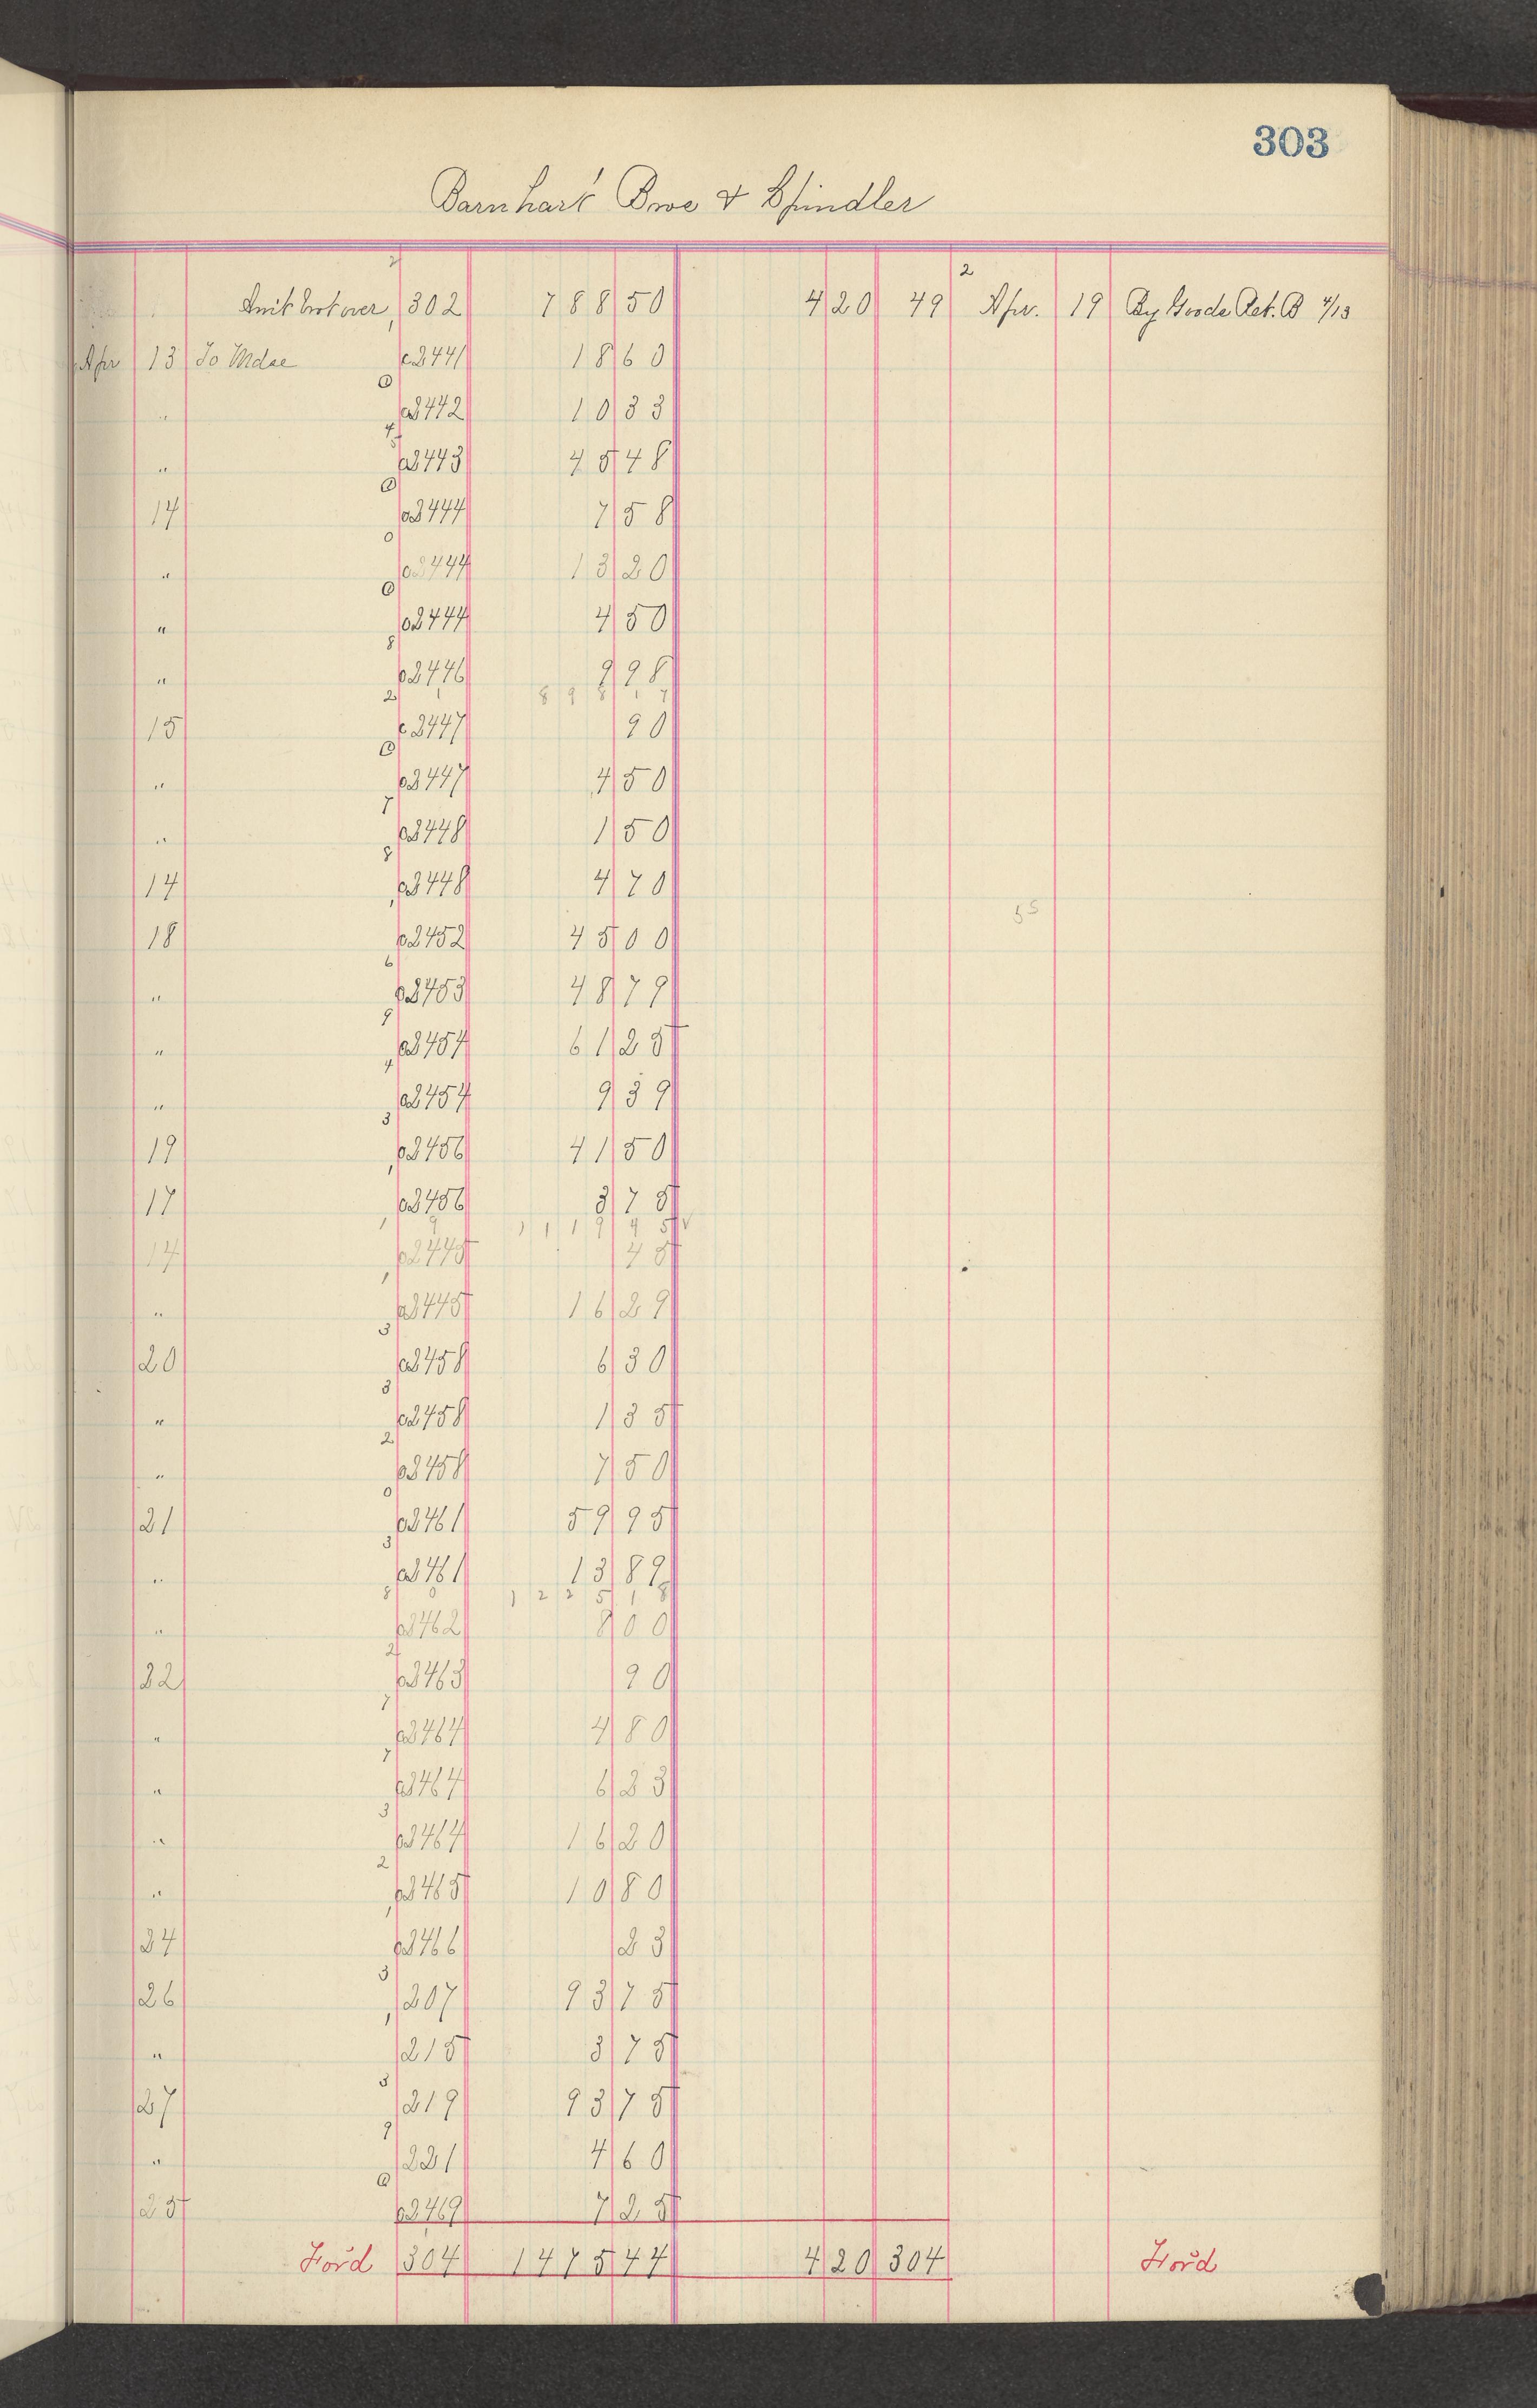 303
Barnhart Broe & Spindler
Amt brot over 302 788 50 4 20 49 Apr. 19 By Goods Ret. B 4/13
Apr 13 To Mdse c2441 18 60
" c2442 10 33
" c2443 45 48
14 c2444 7 58
" c2444 13 20
" c2444 4 50
" c2446 9 98
898 17
15 c2447 90
" c2447 4 50
" c2448 1 50
14 c2448 4 70
18 c2452 45 00
" c2453 48 79
" c2454 61 25
" c2454 9 39
19 c2456 41 50
17 c2456 3 75
1119 45
14 c2445 45
" c2445 16 29
20 c2458 6 30
" c2458 1 35
" c2458 7 50
21 c2461 59 95
" c2461 13 89
1225 18
" c2462 8 00
22 c2463 90
" c2464 4 80
" c2464 6 23
" c2464 16 20
" c2465 10 80
24 c2466 23
26 207 93 75
" 215 3 75
27 219 93 75
" 221 4 60
25 c2469 7 25
Ford 304 1475 44 4 20 304 Ford